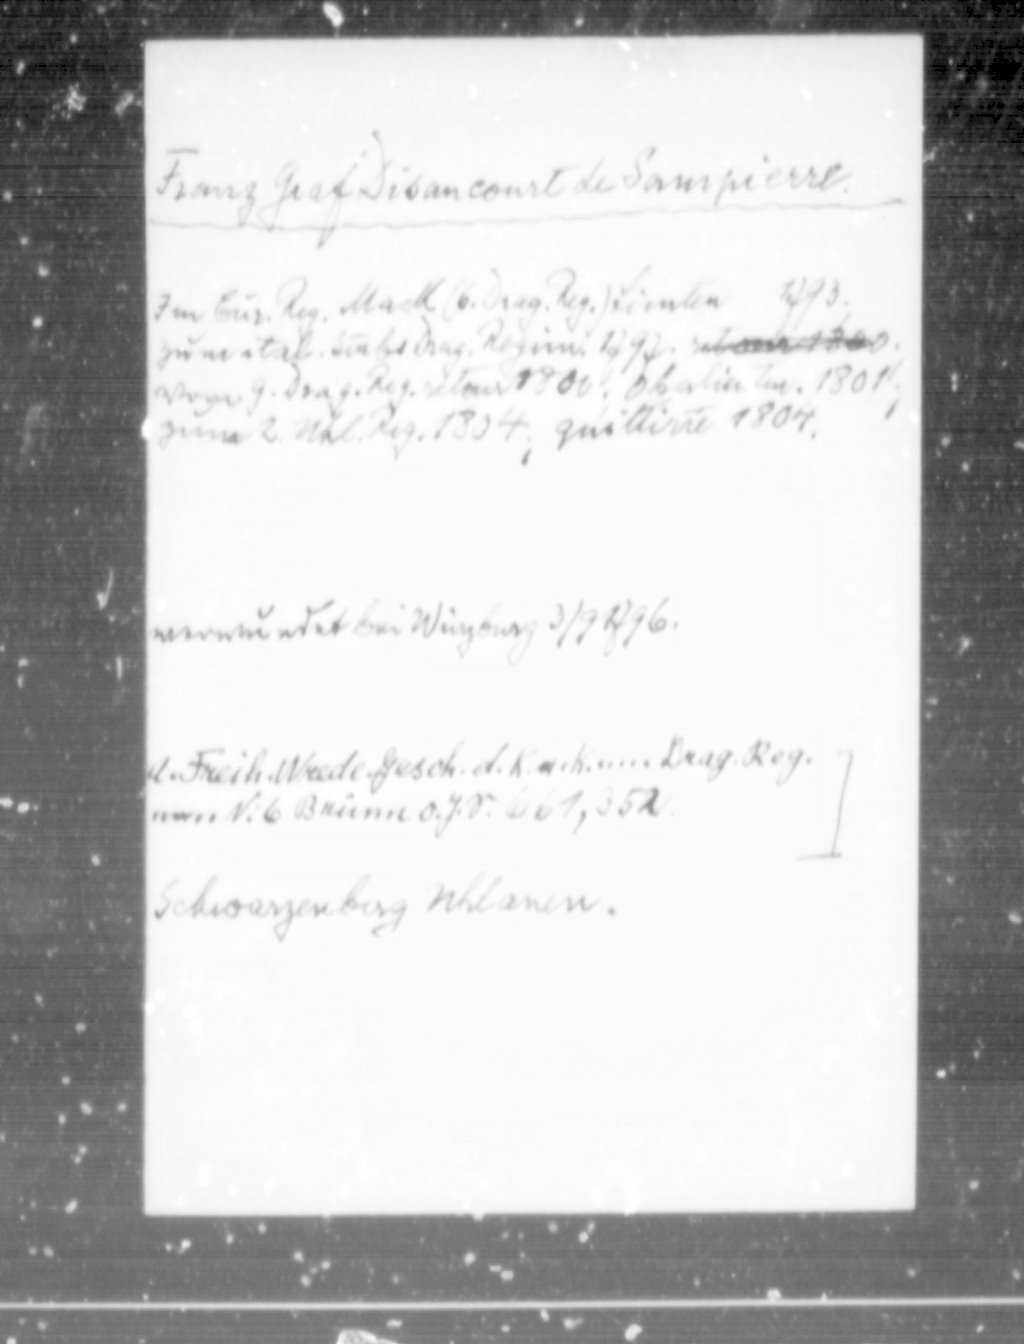 Franz Graf Disancourt de Sampierre.
Im Cür. Reg. Mack (6. Drag. Reg.) Lieuten 1793,
zum ital. Stabs Drag. Regim. 1797. retour 1800.
vom 9. Drag. Reg. retour 1800; Oberlieuten. 1801;
zum 2. Uhl. Reg. 1804; quittirte 1804.
verwundet bei Würzburg 3/9 1796.
d. Freih. Wrede. Gesch. d. K. u. K. Drag. Reg.
N: 6 Brünn o. J. S. 661, 352.
Schwarzenberg Uhlanen.